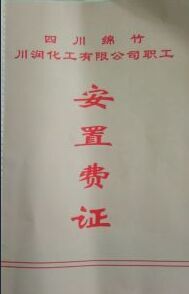 四川绵竹
川润化工有限公司职工
安
置
费
证